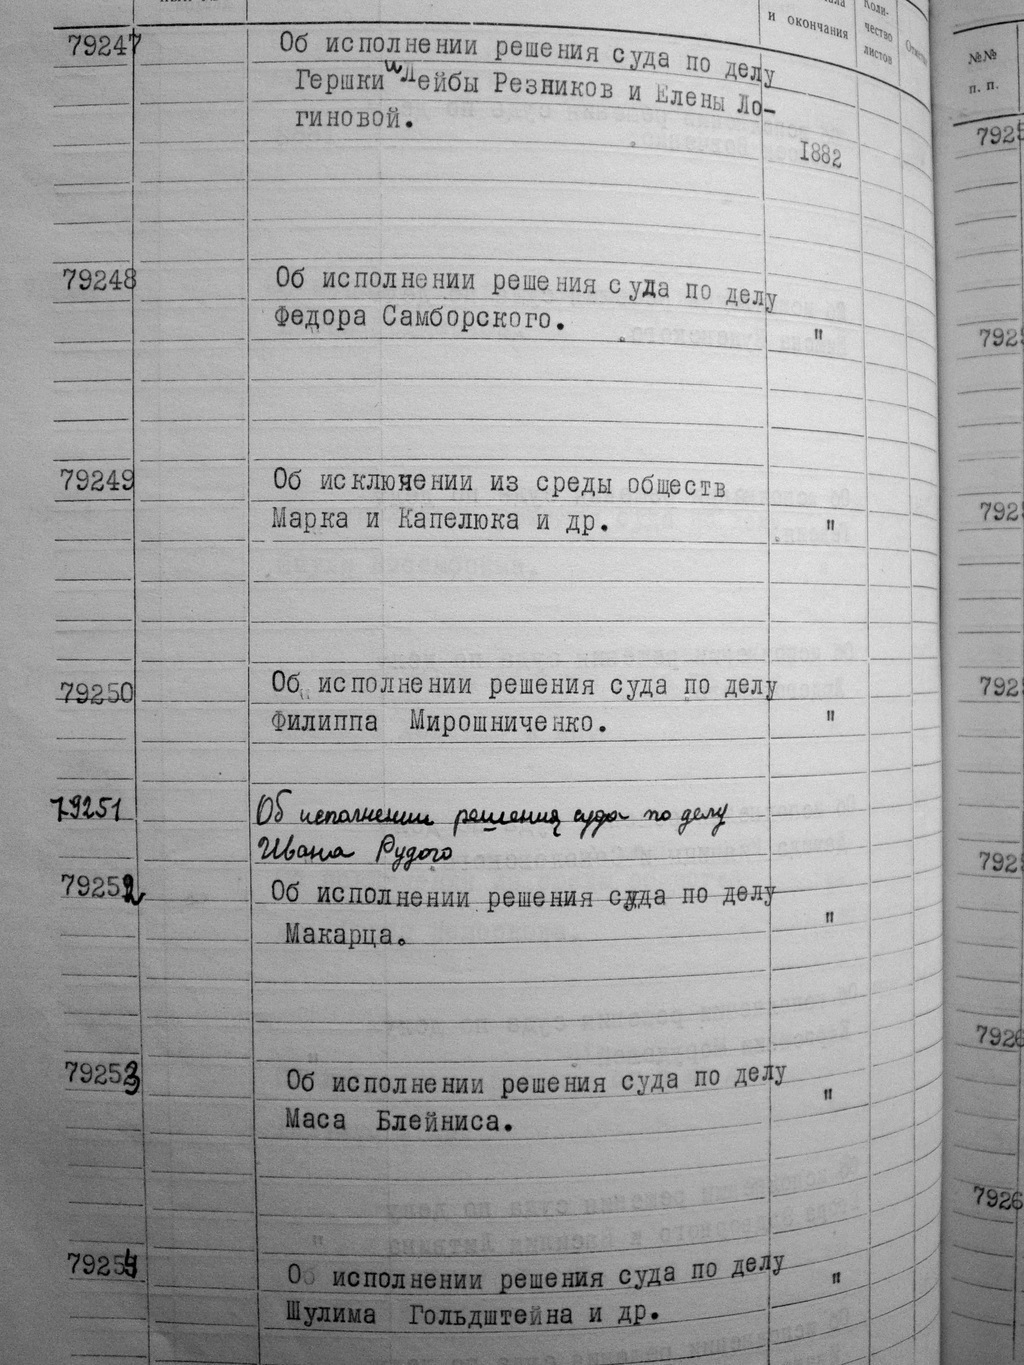 и окончания
Коли-
чество
листов
№№
п. п.
79247
Об исполнении решения суда по делу
Гершки и Лейбы Резников и Елены Ло-
гиновой.
1882
79248
Об исполнении решения суда по делу
Федора Самборского.
"
79249
Об исключении из среды обществ
Марка и Капелюка и др.
"
79250
Об исполнении решения суда по делу
Филиппа Мирошниченко.
"
79251
Об исполнении решения суда по делу
Ивана Рудого
79252
Об исполнении решения суда по делу
Макарца.
"
79253
Об исполнении решения суда по делу
Маса Блейниса.
"
79254
Об исполнении решения суда по делу
Шулима Гольдштейна и др.
"